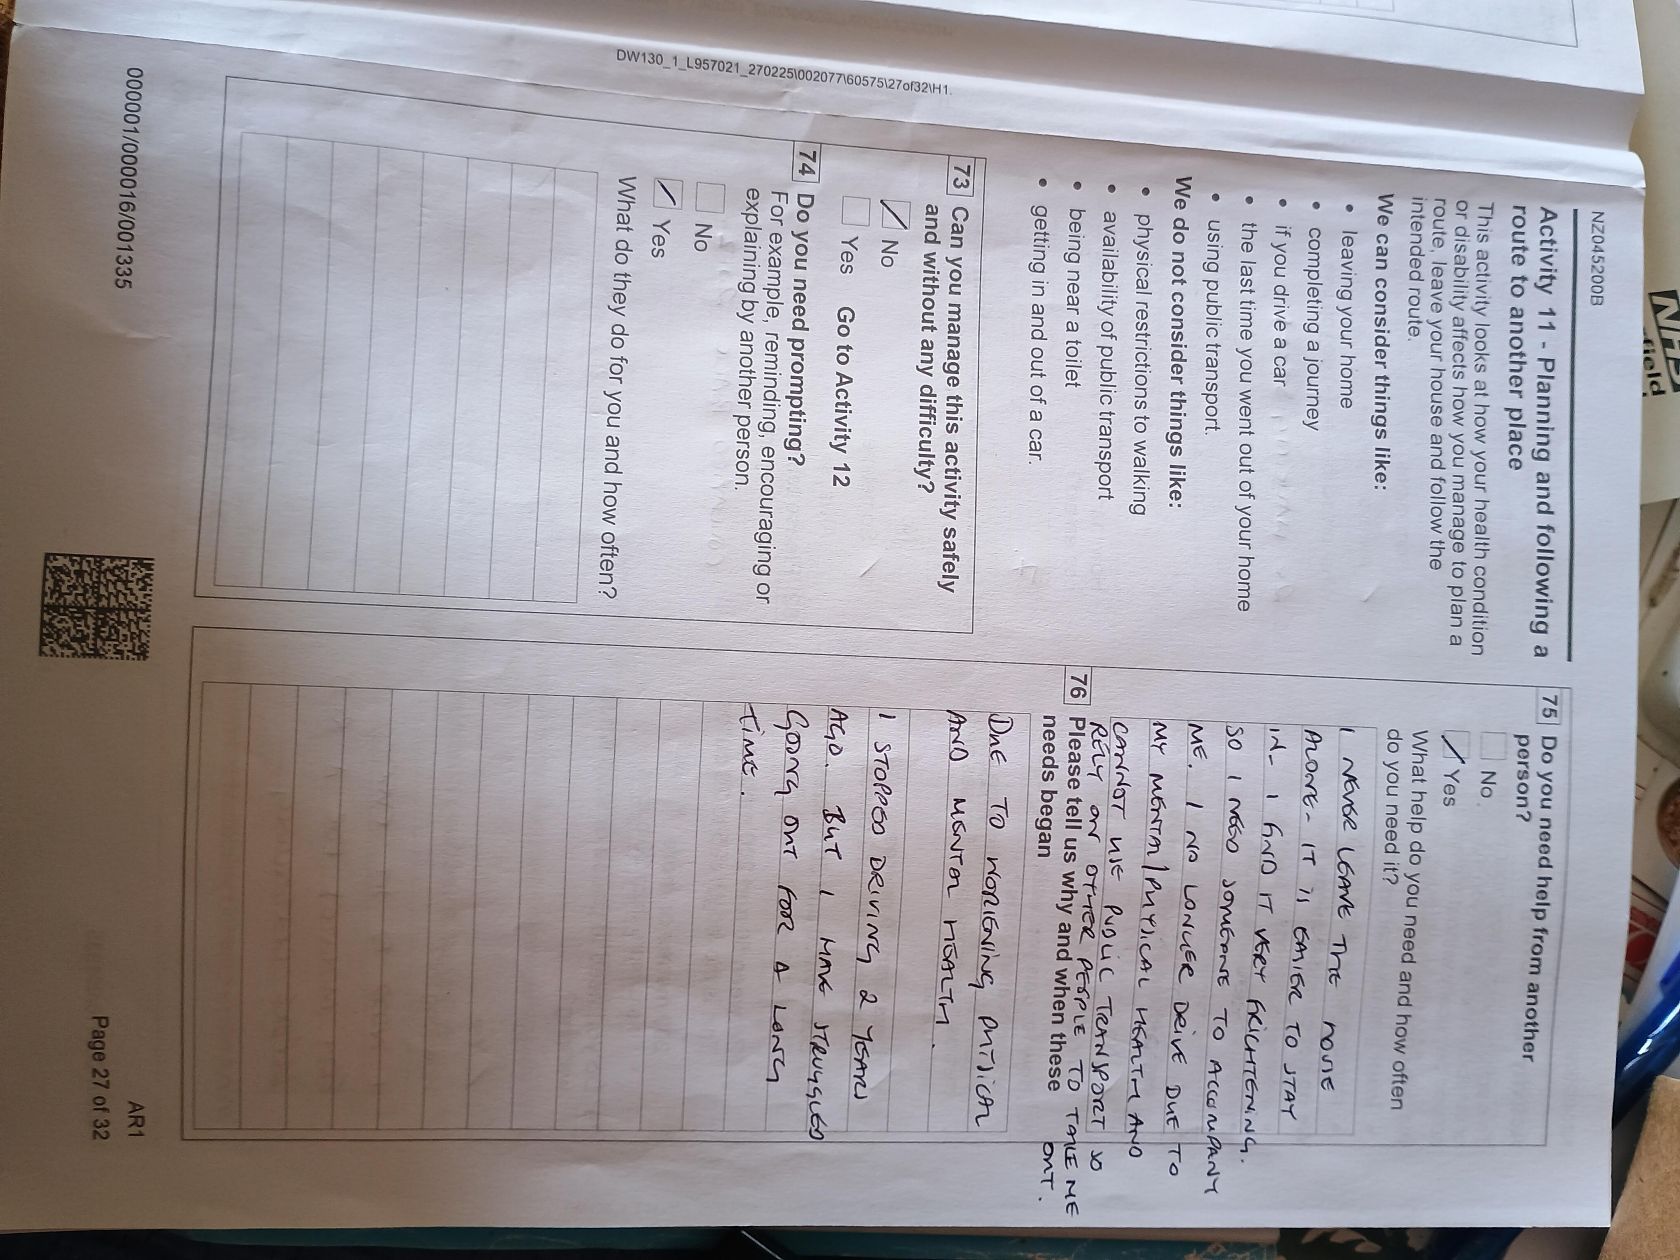 NZ045200B
Activity 11 - Planning and following a
route to another place
This activity looks at how your health condition
or disability affects how you manage to plan a
route, leave your house and follow the
intended route.
We can consider things like:
• leaving your home
• completing a journey
• if you drive a car
• the last time you went out of your home
• using public transport.
We do not consider things like:
• physical restrictions to walking
• availability of public transport
• being near a toilet
• getting in and out of a car.
73 Can you manage this activity safely
and without any difficulty?
No
Yes Go to Activity 12
74 Do you need prompting?
For example, reminding, encouraging or
explaining by another person.
No
Yes
What do they do for you and how often?
75 Do you need help from another
person?
No
Yes
What help do you need and how often
do you need it?
I NEVER LEAVE THE HOUSE
ALONE - IT IS EASIER TO STAY
IN - I FIND IT VERY FRIGHTENING.
SO I NEED SOMEONE TO ACCOMPANY
ME. I NO LONGER DRIVE DUE TO
MY MENTAL/PHYSICAL HEALTH AND
CANNOT USE PUBLIC TRANSPORT SO
RELY ON OTHER PEOPLE TO TAKE ME
OUT.
76 Please tell us why and when these
needs began
DUE TO WORSENING PHYSICAL
AND MENTAL HEALTH.
I STOPPED DRIVING 2 YEARS
AGO. BUT I HAVE STRUGGLED
GOING OUT FOR A LONG
TIME.
DW130_1_L957021_270225\002077\60575\27of32\H1.
000001/000016/001335
AR1
Page 27 of 32
field